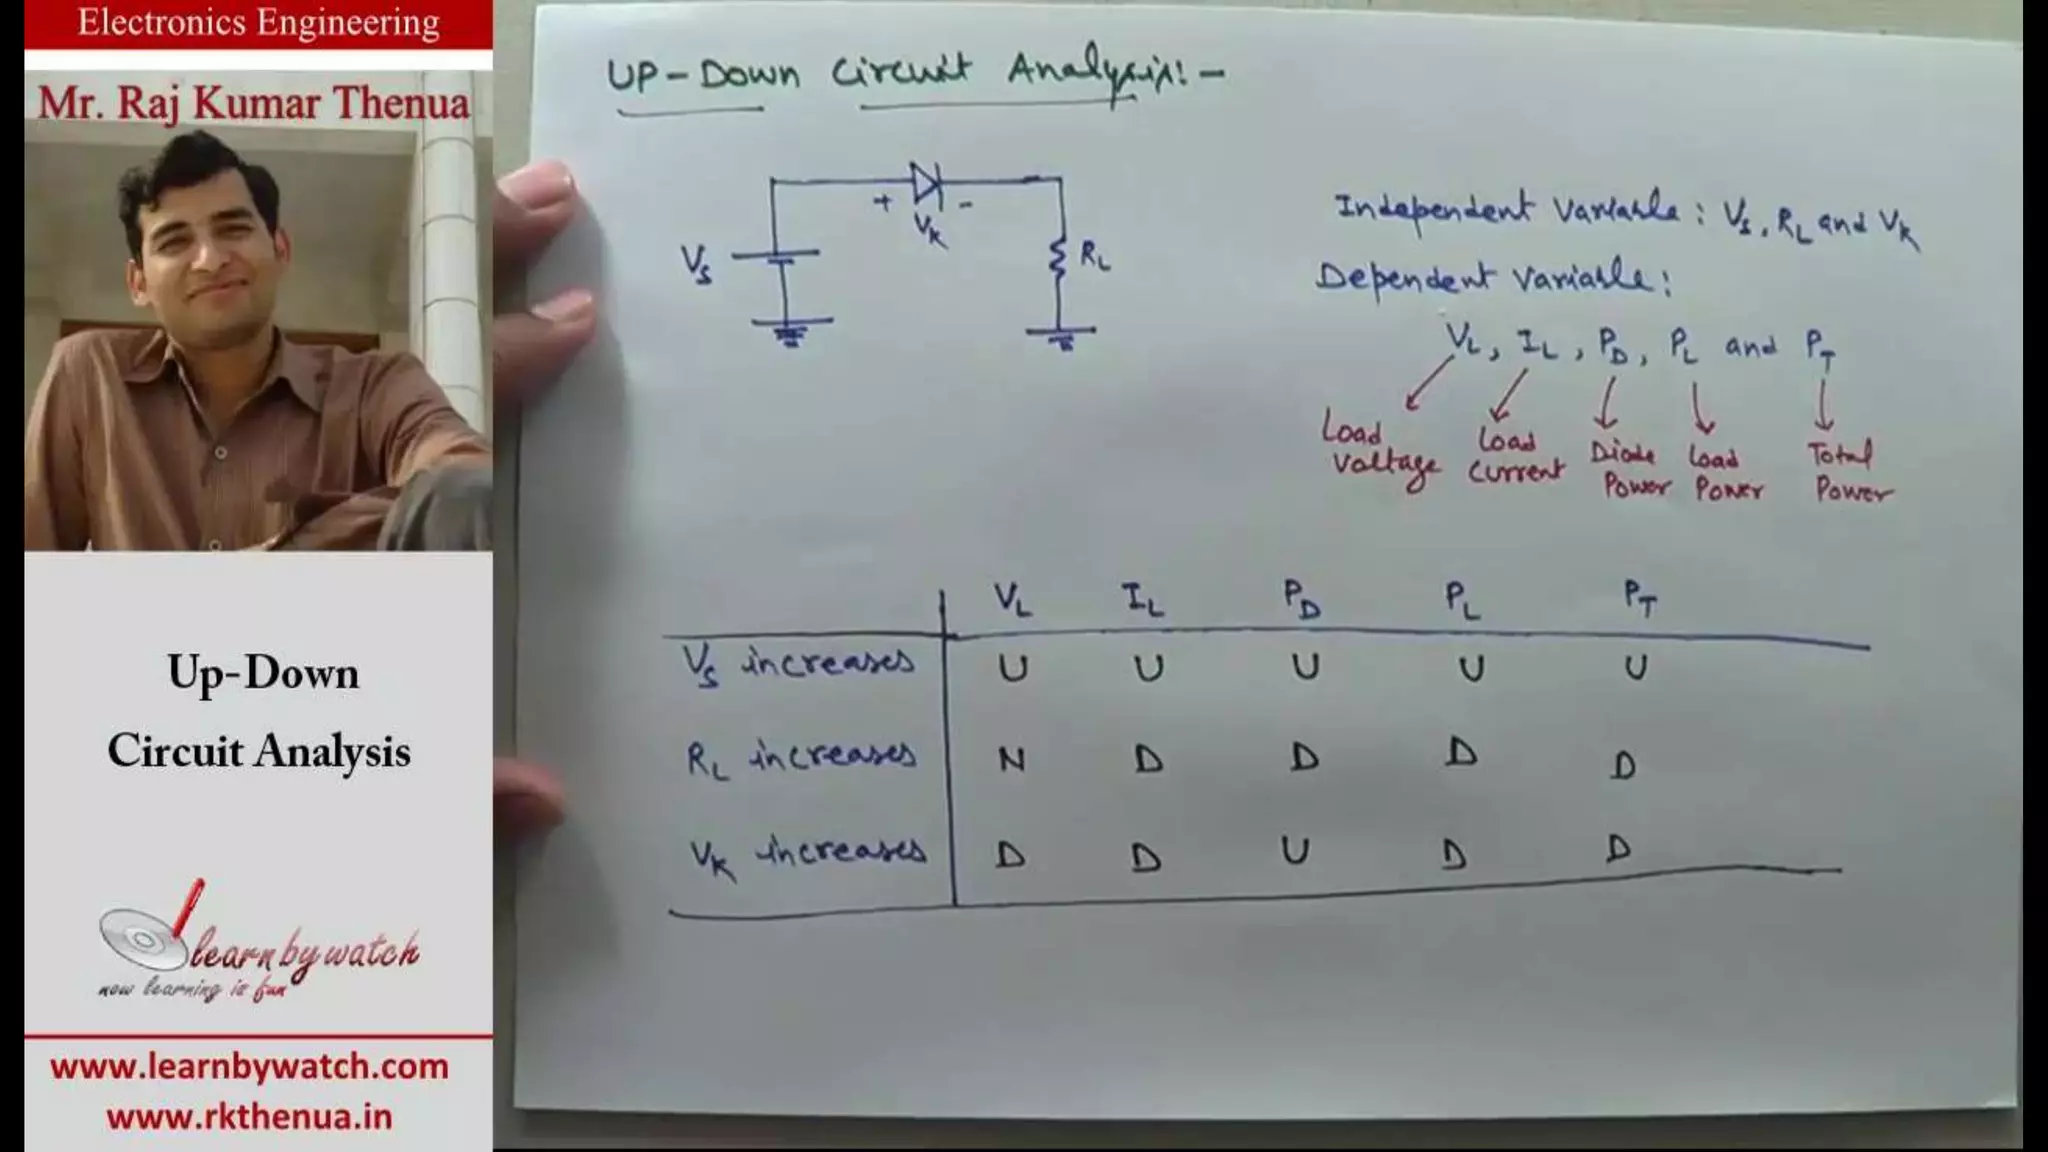 Electronics Engineering
Mr. Raj Kumar Thenua
Up-Down
Circuit Analysis
learnbywatch
now learning is fun
www.learnbywatch.com
www.rkthenua.in
UP-Down Circuit Analysis:-
+ VK -
VS
RL
Independent Variable: VS, RL and VK
Dependent Variable:
VL, IL, PD, PL and PT
Load Voltage
Load Current
Diode Power
Load Power
Total Power
VL IL PD PL PT
VS increases U U U U U
RL increases N D D D D
VK increases D D U D D